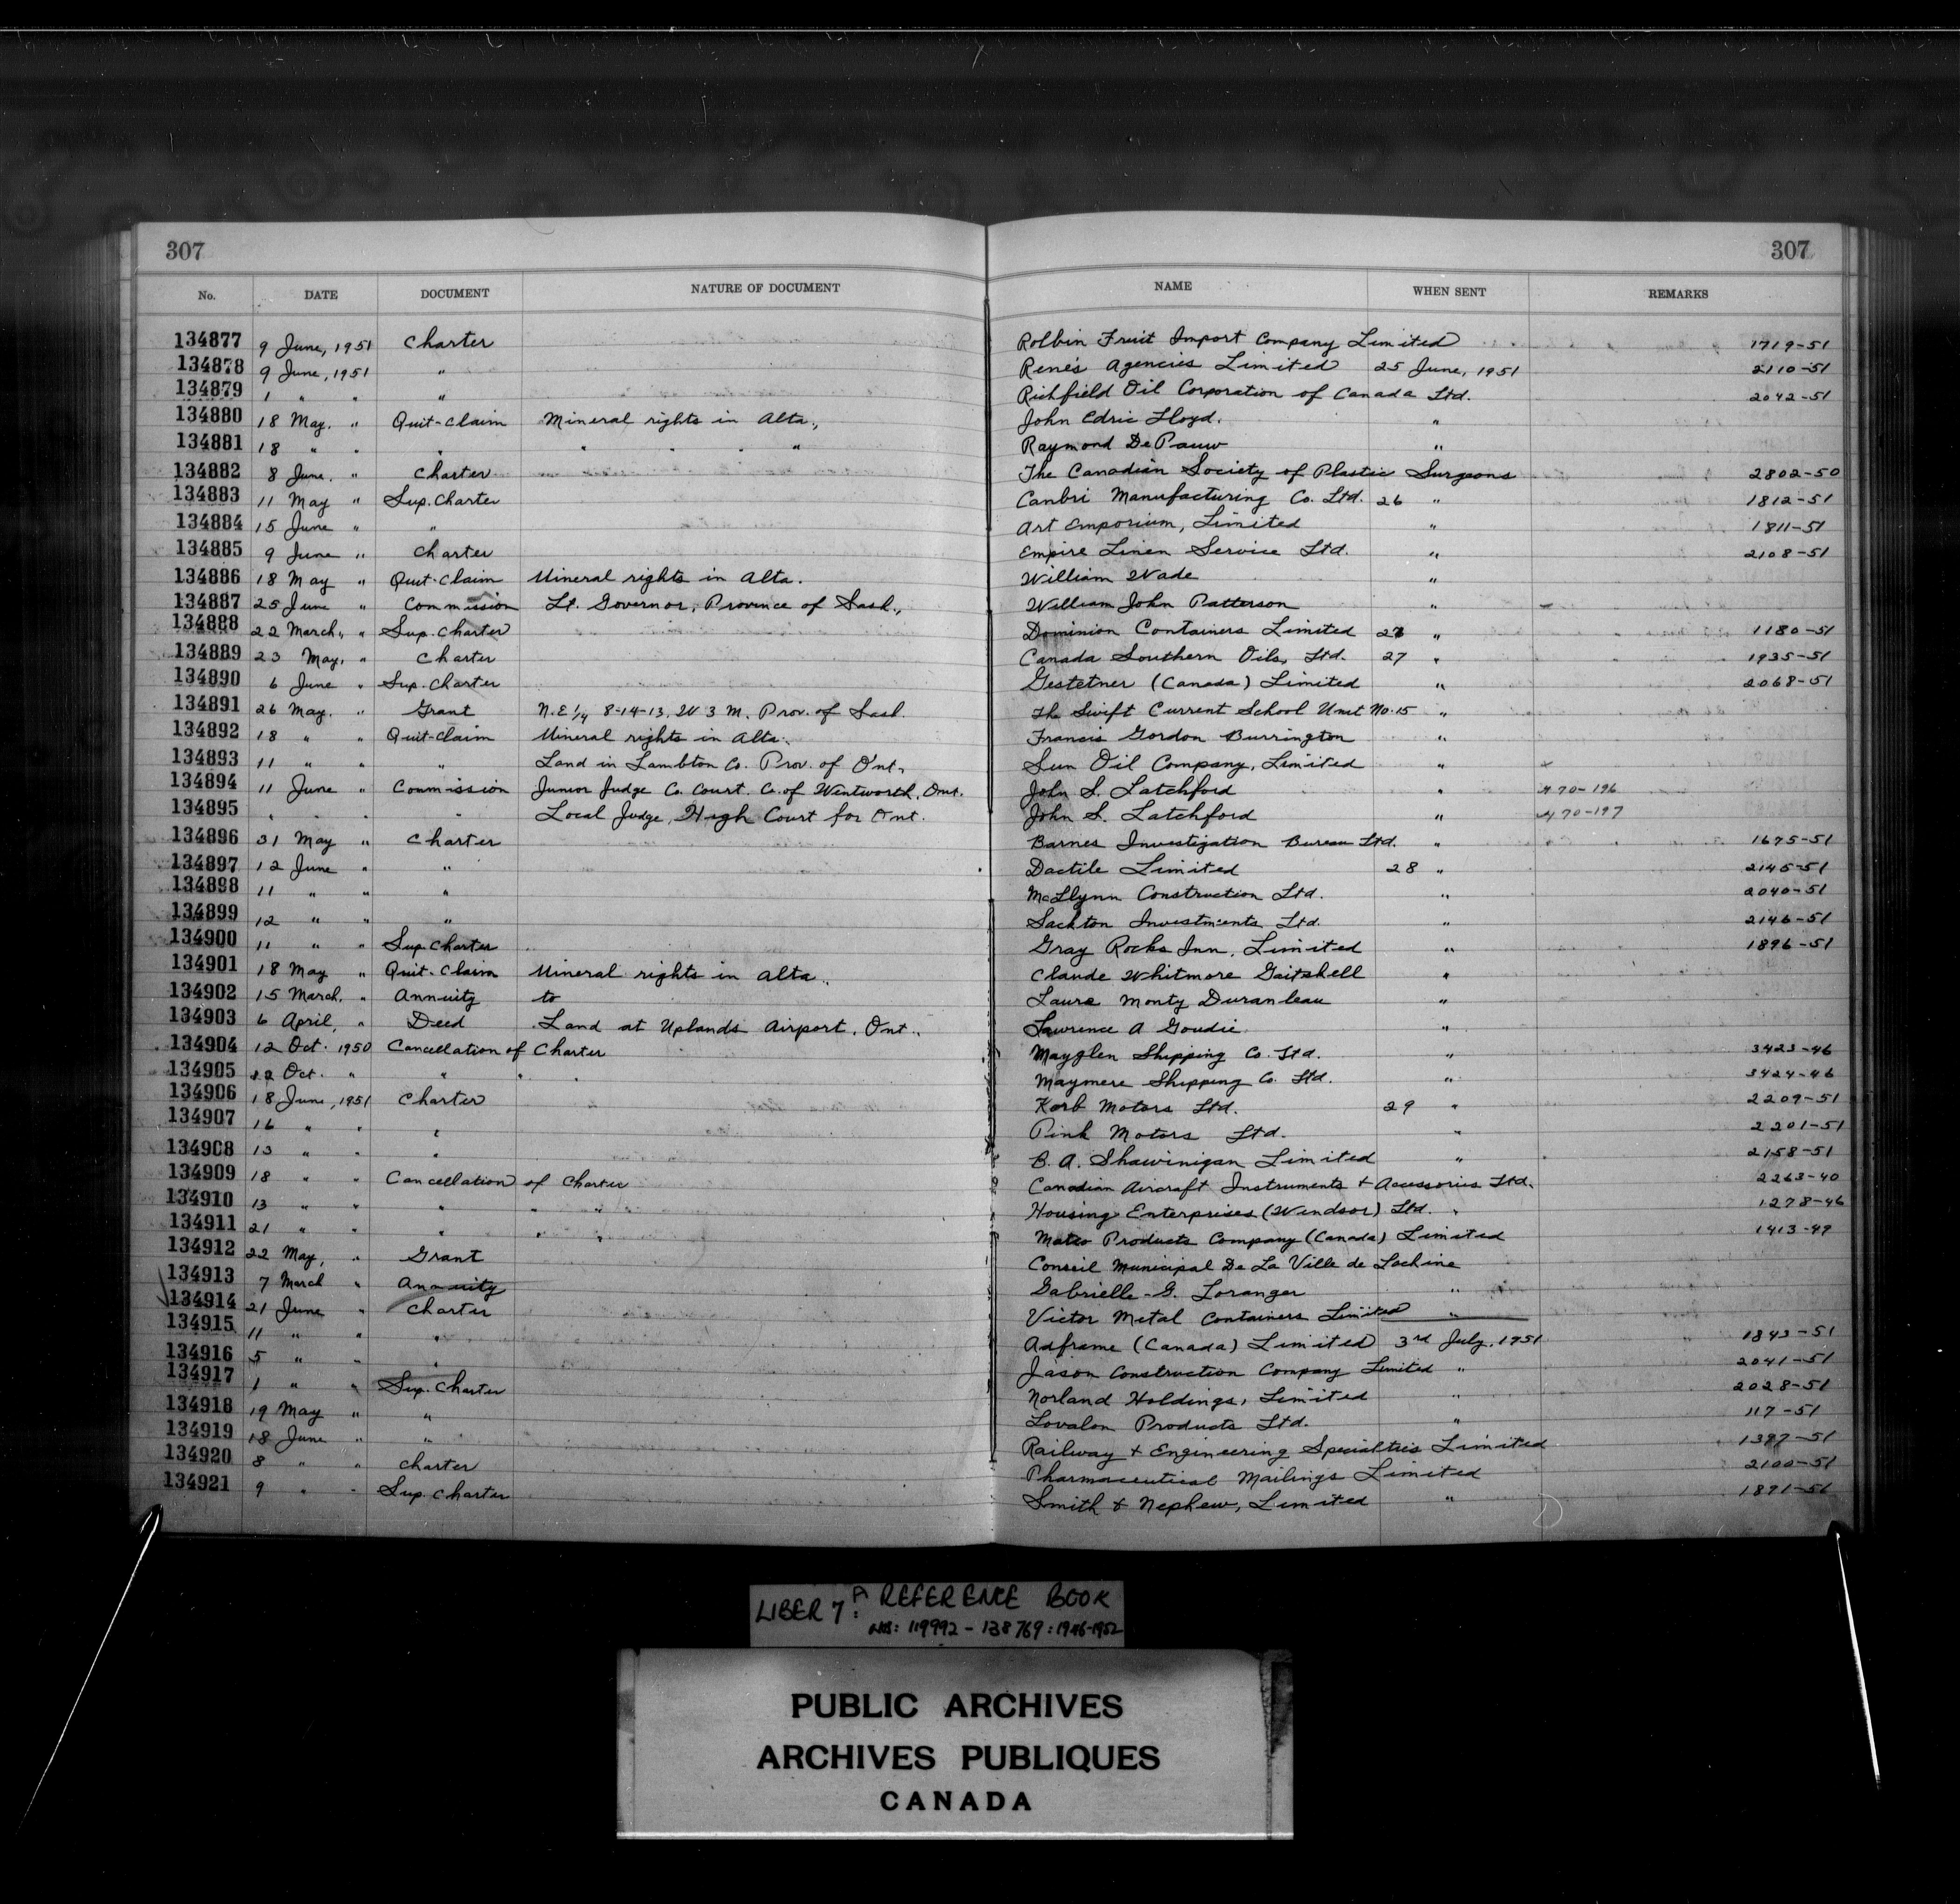 307 307
No. DATE DOCUMENT NATURE OF DOCUMENT NAME WHEN SENT REMARKS
134877 9 June, 1951 Charter Rolbin Fruit Import Company Limited 1719-51
134878 9 June, 1951 " Rene's Agencies Limited 25 June, 1951 2110-51
134879 1 " " " Richfield Oil Corporation of Canada Ltd. 2042-51
134880 18 May. " Quit-Claim Mineral rights in Alta., John Edric Floyd. "
134881 18 " " " " " " " Raymond DePauw "
134882 8 June. " Charter The Canadian Society of Plastic Surgeons 2802-50
134883 11 May " Sup. Charter Canbri Manufacturing Co. Ltd. 26 " 1812-51
134884 15 June " " Art Emporium, Limited " 1811-51
134885 9 June " Charter Empire Linen Service Ltd. " 2108-51
134886 18 May " Quit-Claim Mineral rights in Alta. William Wade "
134887 25 June " Commission Lt. Governor, Province of Sask., William John Patterson "
134888 22 March, " Sup. Charter Dominion Containers Limited 27 " 1180-51
134889 23 May, " Charter Canada Southern Oils, Ltd. 27 " 1935-51
134890 6 June " Sup. Charter Gestetner (Canada) Limited " 2068-51
134891 26 May. " Grant N.E 1/4 8-14-13, W 3 M. Prov. of Sask. The Swift Current School Unit No. 15 "
134892 18 " " Quit-Claim Mineral rights in Alta. Francis Gordon Burrington "
134893 11 " " " Land in Lambton Co. Prov. of Ont. Sun Oil Company, Limited "
134894 11 June " Commission Junior Judge Co. Court. Co. of Wentworth, Ont. John S. Latchford " 470-196
134895 " " " " Local Judge, High Court for Ont. John S. Latchford " 470-197
134896 31 May " Charter Barnes Investigation Bureau Ltd. " 1675-51
134897 12 June " " Dactile Limited 28 " 2145-51
134898 11 " " " McFlynn Construction Ltd. " 2040-51
134899 12 " " " Sackton Investments Ltd. " 2146-51
134900 11 " " Sup. Charter Gray Rocks Inn, Limited " 1896-51
134901 18 May " Quit-Claim Mineral rights in Alta. Claude Whitmore Gaitskell "
134902 15 March. " Annuity to Laura Monty Duranleau "
134903 6 April, " Deed Land at Uplands Airport, Ont. Lawrence A Goudie. "
134904 12 Oct. 1950 Cancellation of Charter Mayglen Shipping Co. Ltd. " 3423-46
134905 12 Oct. " " " " Maymere Shipping Co. Ltd. " 3424-46
134906 18 June, 1951 Charter Korb Motors Ltd. 29 " 2209-51
134907 16 " " " Pink Motors Ltd. " 2201-51
134908 13 " " " B. A. Shawinigan Limited " 2158-51
134909 18 " " Cancellation of Charter Canadian Aircraft Instruments & Accessories Ltd. 2263-40
134910 13 " " " " " Housing Enterprises (Windsor) Ltd. " 1278-46
134911 21 " " " " " Matco Products Company (Canada) Limited 1413-49
134912 22 May, " Grant Conseil Municipal De La Ville de Lachine
134913 7 March " Annuity Gabrielle-G. Loranger "
134914 21 June " Charter Victor Metal Containers Limited "
134915 11 " " " Adframe (Canada) Limited 3rd July, 1951 1843-51
134916 5 " " " Jason Construction Company Limited " 2041-51
134917 1 " " Sup. Charter Norland Holdings, Limited " 2028-51
134918 19 May " " Lovalon Products Ltd. " 117-51
134919 18 June " " Railway & Engineering Specialties Limited 1397-51
134920 8 " " Charter Pharmaceutical Mailings Limited 2100-51
134921 9 " " Sup. Charter Smith & Nephew, Limited " 1891-51
LIBER 7: A REFERENCE BOOK
NOS: 119992 - 138769: 1946-1952
PUBLIC ARCHIVES
ARCHIVES PUBLIQUES
CANADA